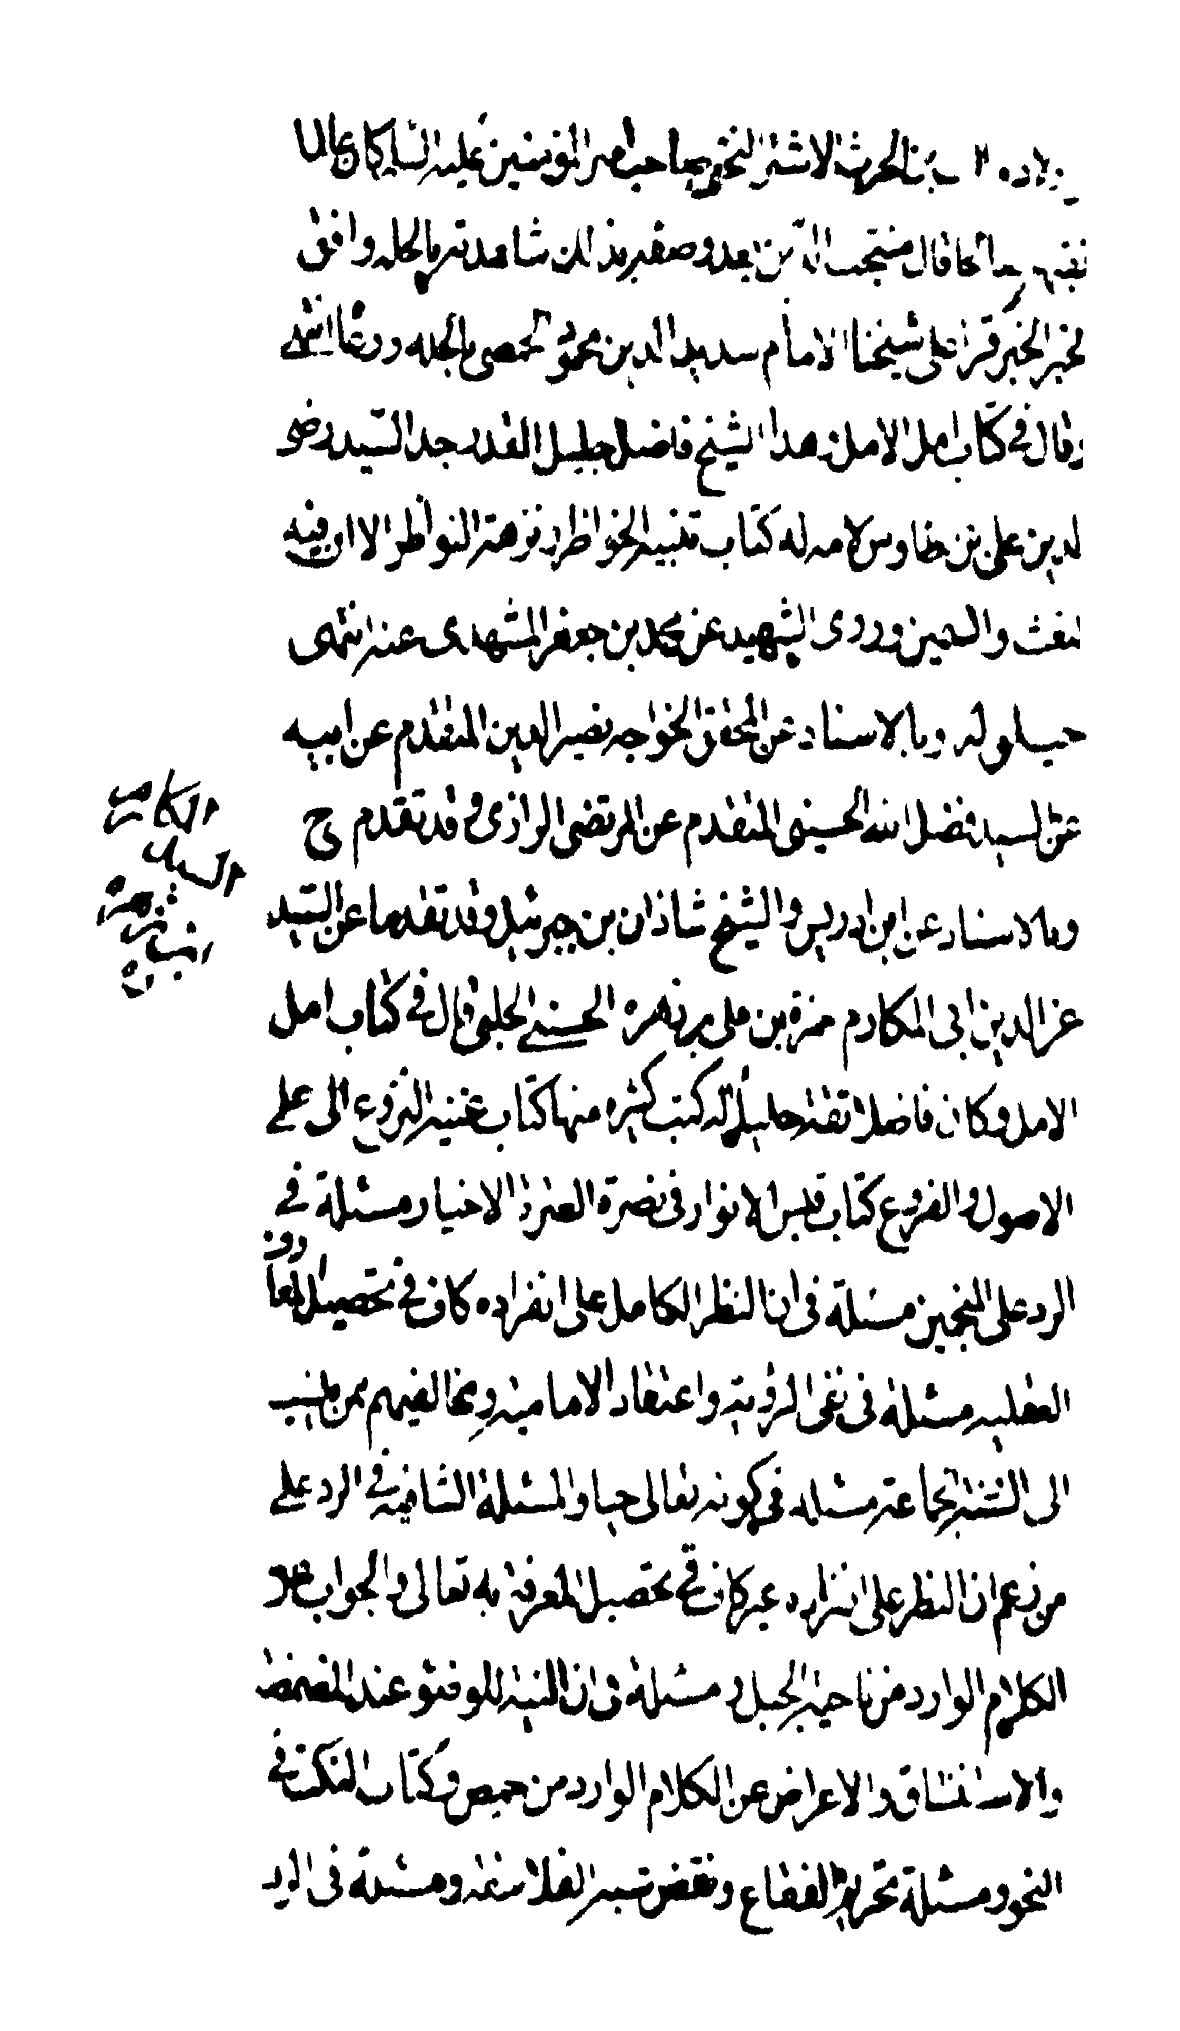 بن الحرث الاشتر النخعي صاحب امير المؤمنين عليه السلم كان عالما
فقيها صالحا قال منتجب الدين بعد وصفه بذلك شاهدته بالحله ووافق
الخبر الخبر قرا على شيخنا الامام سديد الدين محمود الحمصى بالحله ورعا انتهى
وقال في كتاب امل الامل هذا الشيخ فاضل جليل القدر جد السيد رضى
لدين على بن طاوس لامه له كتاب تنبيه الخواطر ونزهة النواظر الا ان فيه
الغث والسمين وروى الشهيد عن محمد بن جعفر المشهدى عنه انتهى
حيلوله وبالاسناد عن المحقق الخواجه نصير الدين المتقدم عن ابيه
عن السيد فضل الله الحسينى المتقدم عن المرتضى الرازى وقد تقدم ح
وبالاسناد عن ابن ادريس والشيخ شاذان بن جبرئيل وقد تقدما عن السيد
عز الدين ابى المكارم حمزة بن على بن زهره الحسينى الحلبى قال في كتاب امل
الامل وكان فاضلا ثقة جليلا له كتب كثيره منها كتاب غنيه النزوع الى علم
الاصول والفروع كتاب قبس الانوار فى نصرة العترة الاخيار مسئلة في
الرد على المنجمين مسئلة فى ان النظر الكامل على انفراده كاف في تحصيل المعارف
العقليه مسئلة فى نفى الرؤية واعتقاد الامامية ومخالفيهم ممن ينسب
الى السنة والجماعة مسئله في كونه تعالى حيا والمسئلة الشافيه في الرد على
من زعم ان النظر على انفراده غير كاف في تحصيل المعرفة به تعالى والجواب عن
الكلام الوارد من ناحية الجبل و مسئلة فى ان النية للوضوء عند المضمضة
والاستنشاق والاعراض عن الكلام الوارد من حمص وكتاب النكت في
النحو ومسئلة تحريم الفقاع ونقض شبه الفلاسفة ومسئلة فى الرد